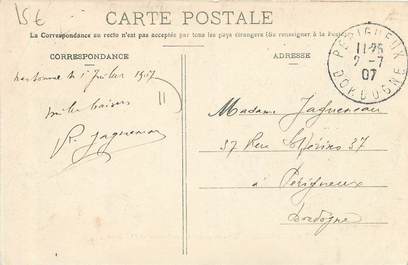 15€
CARTE POSTALE
La Correspondance au recto n'est pas acceptée par tous les pays étrangers (Se renseigner à la Poste)
CORRESPONDANCE
ADRESSE
PÉRIGUEUX
11-25
2-7
07
DORDOGNE
le 1 Juillet 1907
mille baisers
Jagueneau
Madame Jagueneau
37 Rue 37
à Périgueux
Dordogne